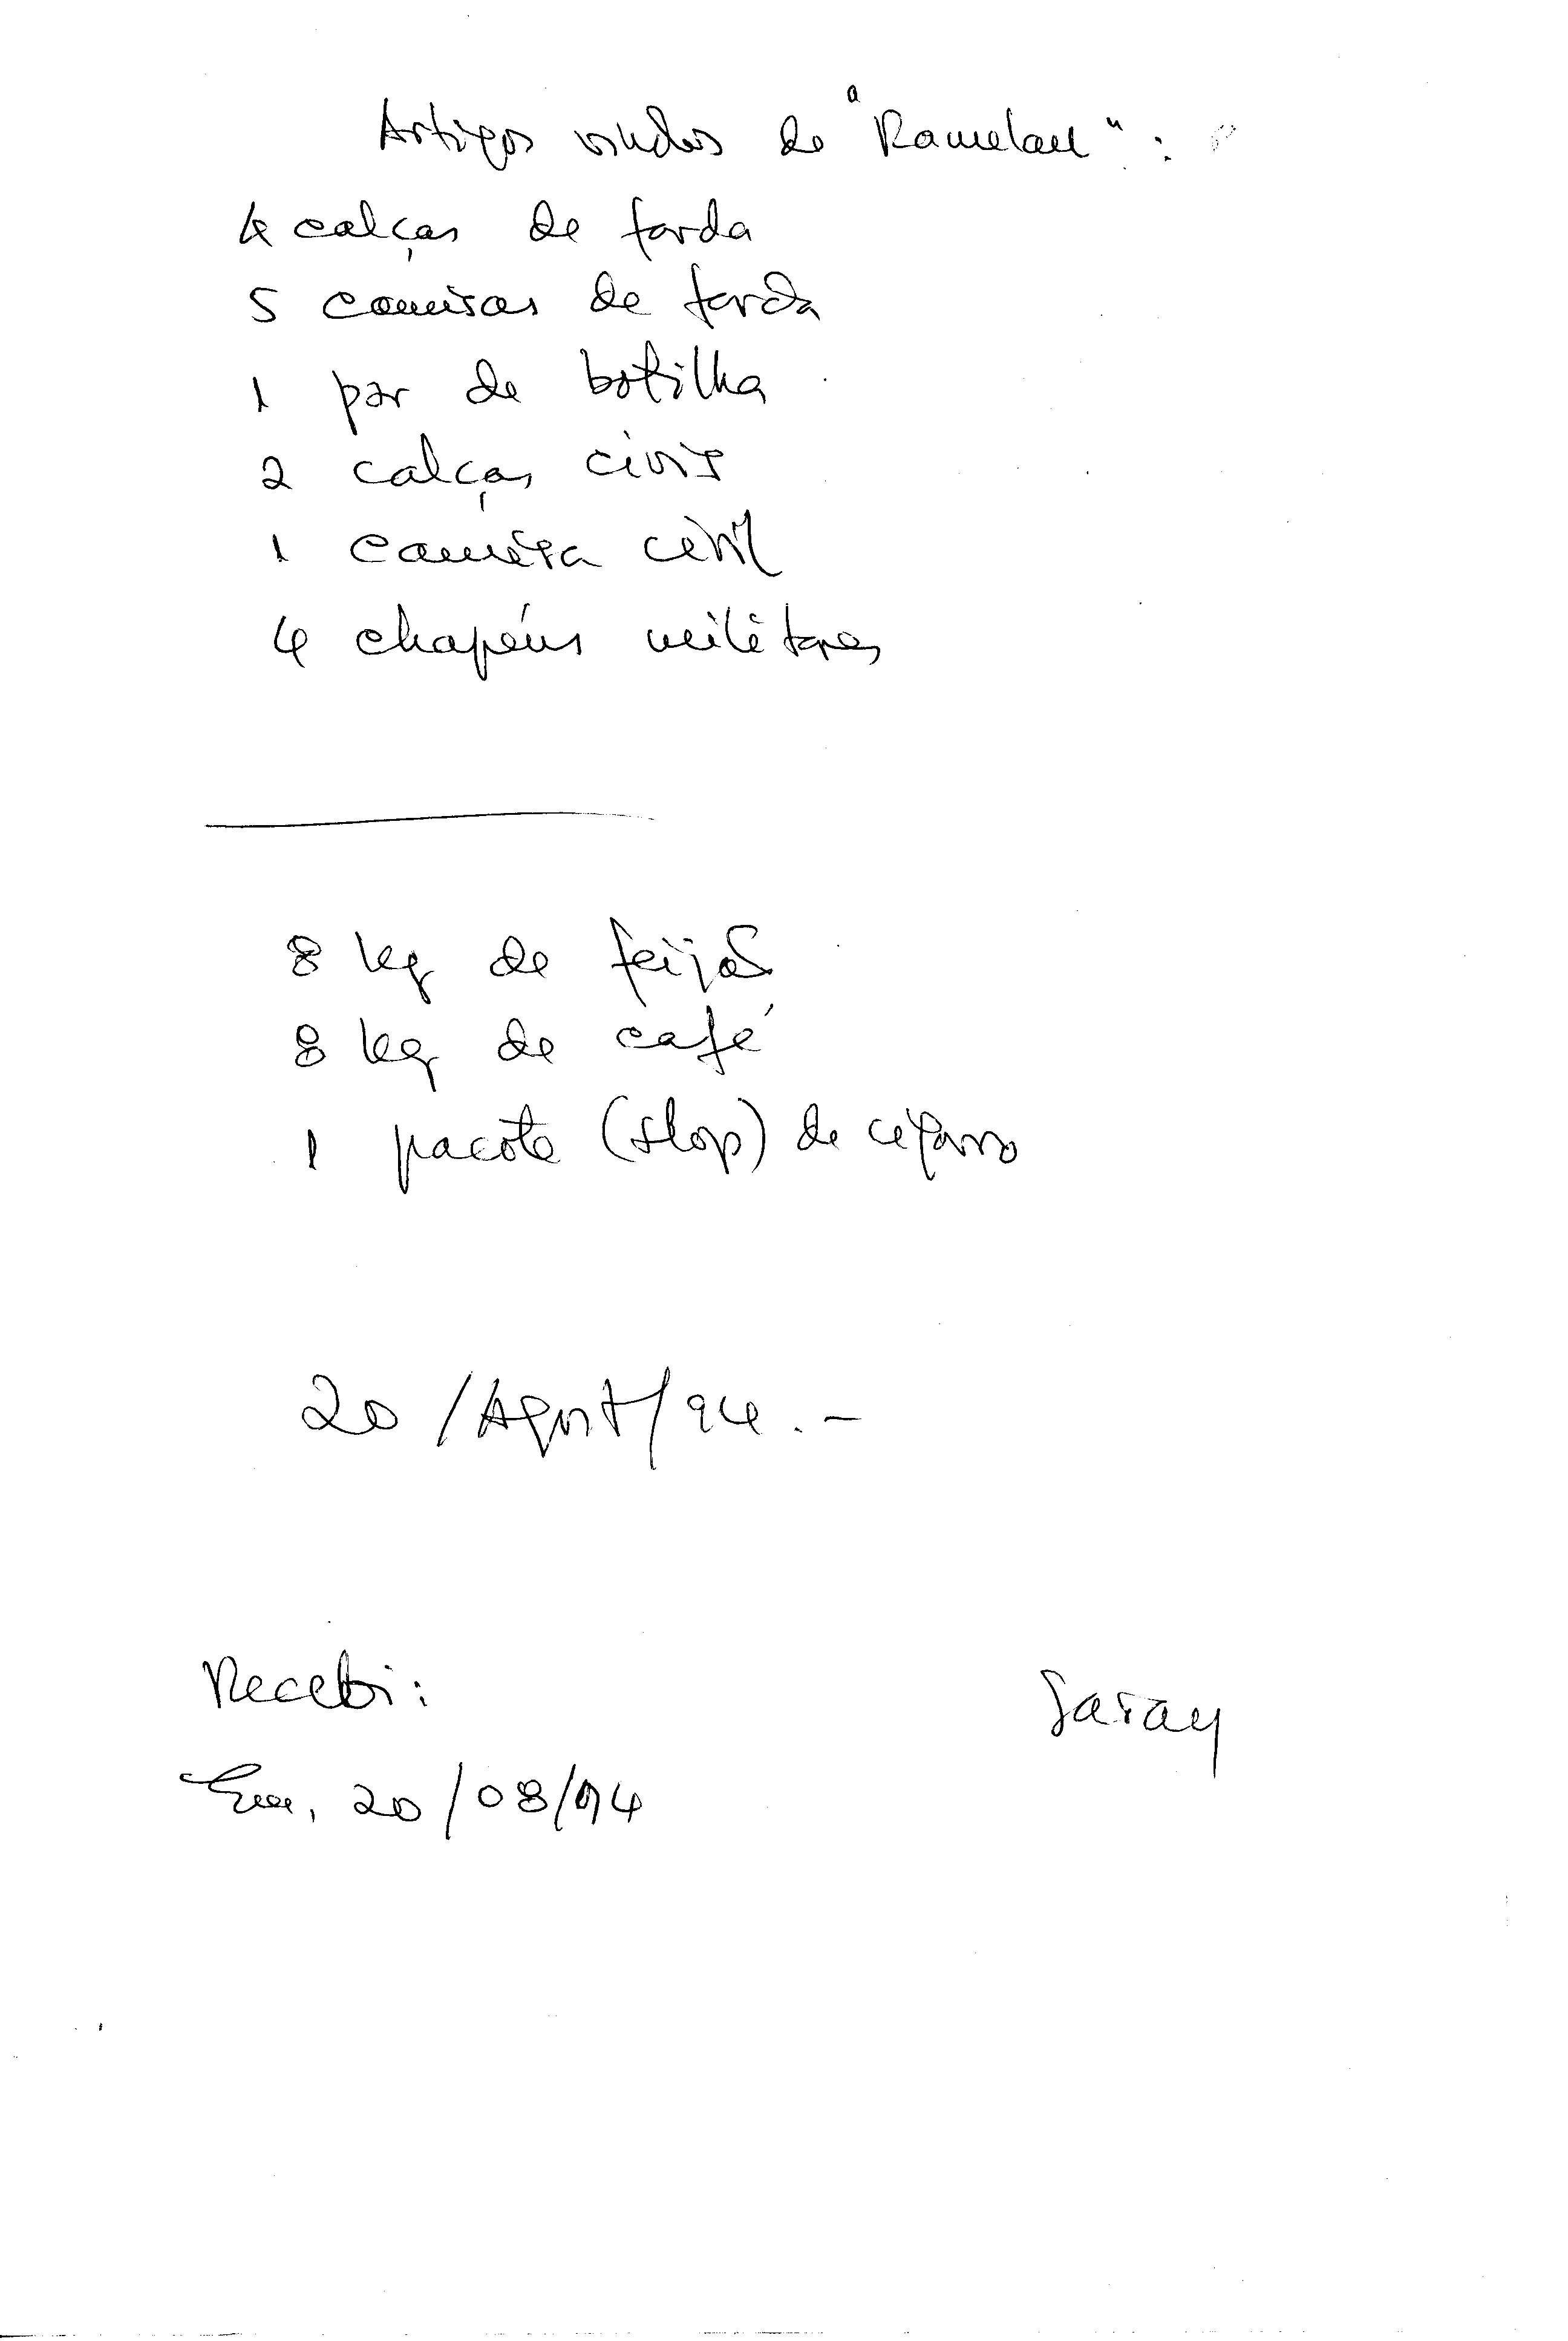 Artigos vindos do "Ramelau":
4 calças de farda
5 camisas de farda
1 par de botilha
2 calças civis
1 camisa civil
4 chapéus militares
8 kg de feijão
8 kg de café
1 pacote (slop) de cigarro
20/Agost/94.-
Recebi:
Saray
Em, 20/08/94